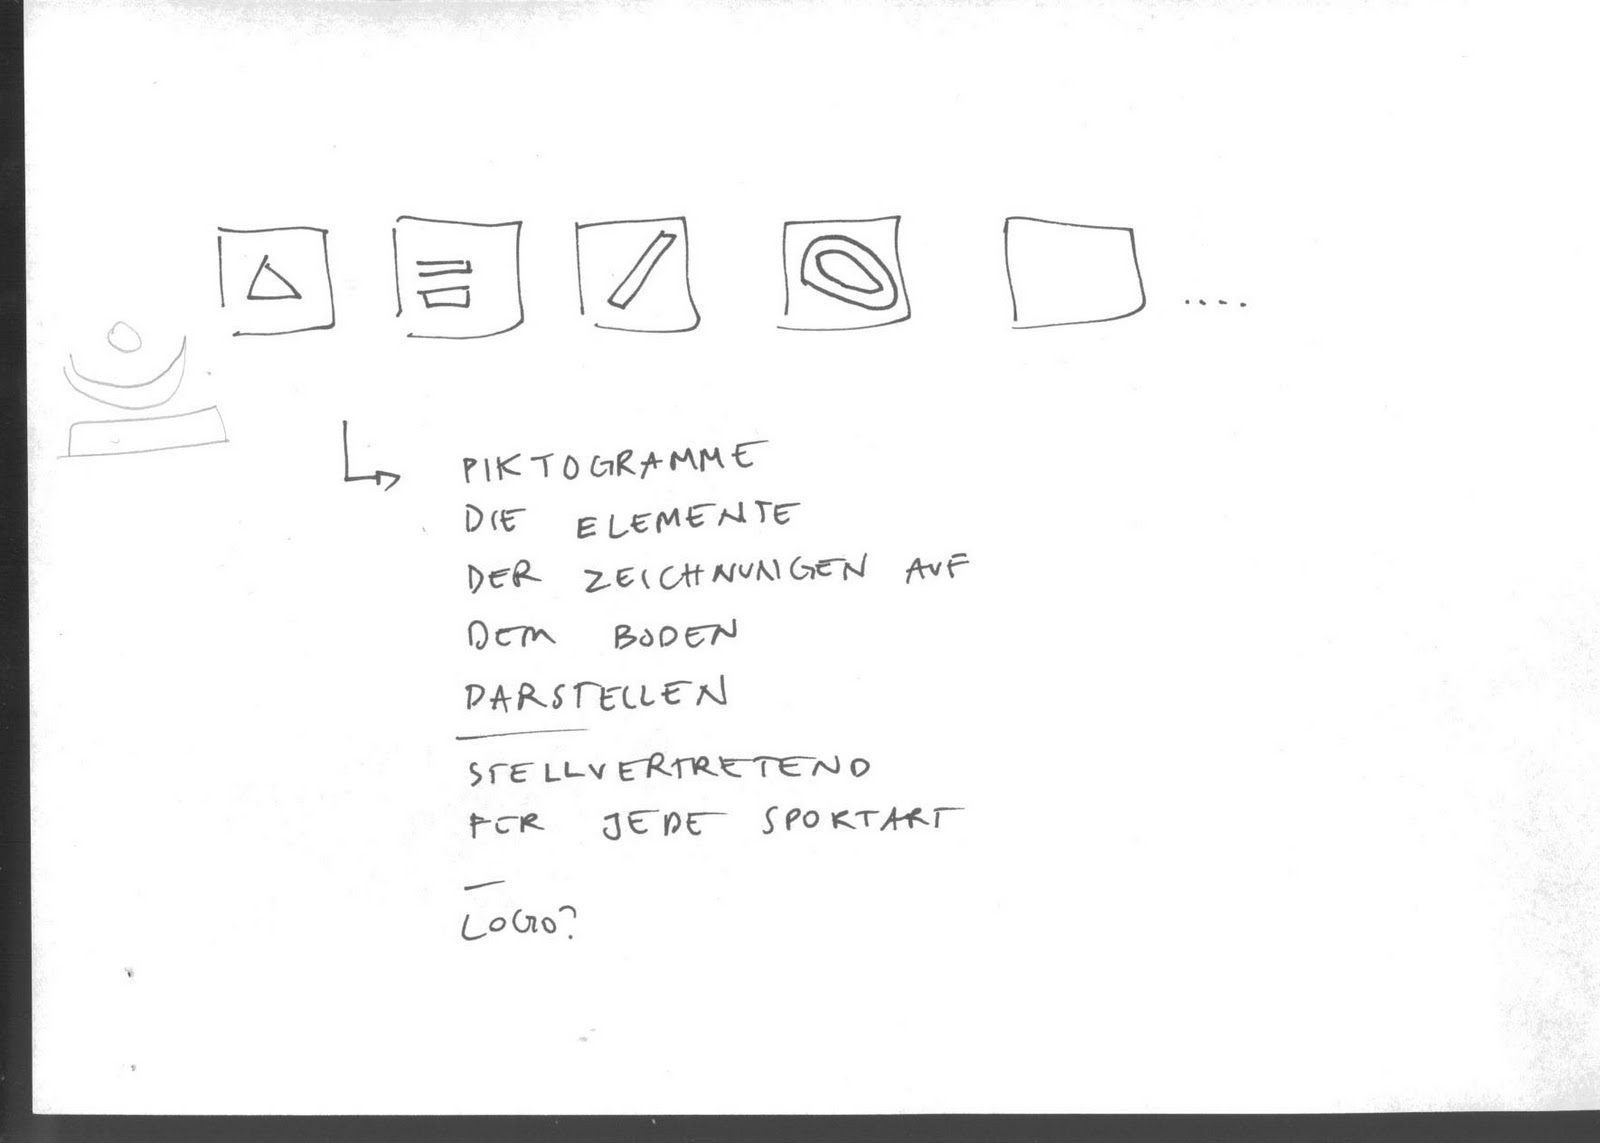 ....
PIKTOGRAMME
DIE ELEMENTE
DER ZEICHNUNGEN AUF
DEM BODEN
DARSTELLEN
STELLVERTRETEND
FÜR JEDE SPORTART
LOGO?